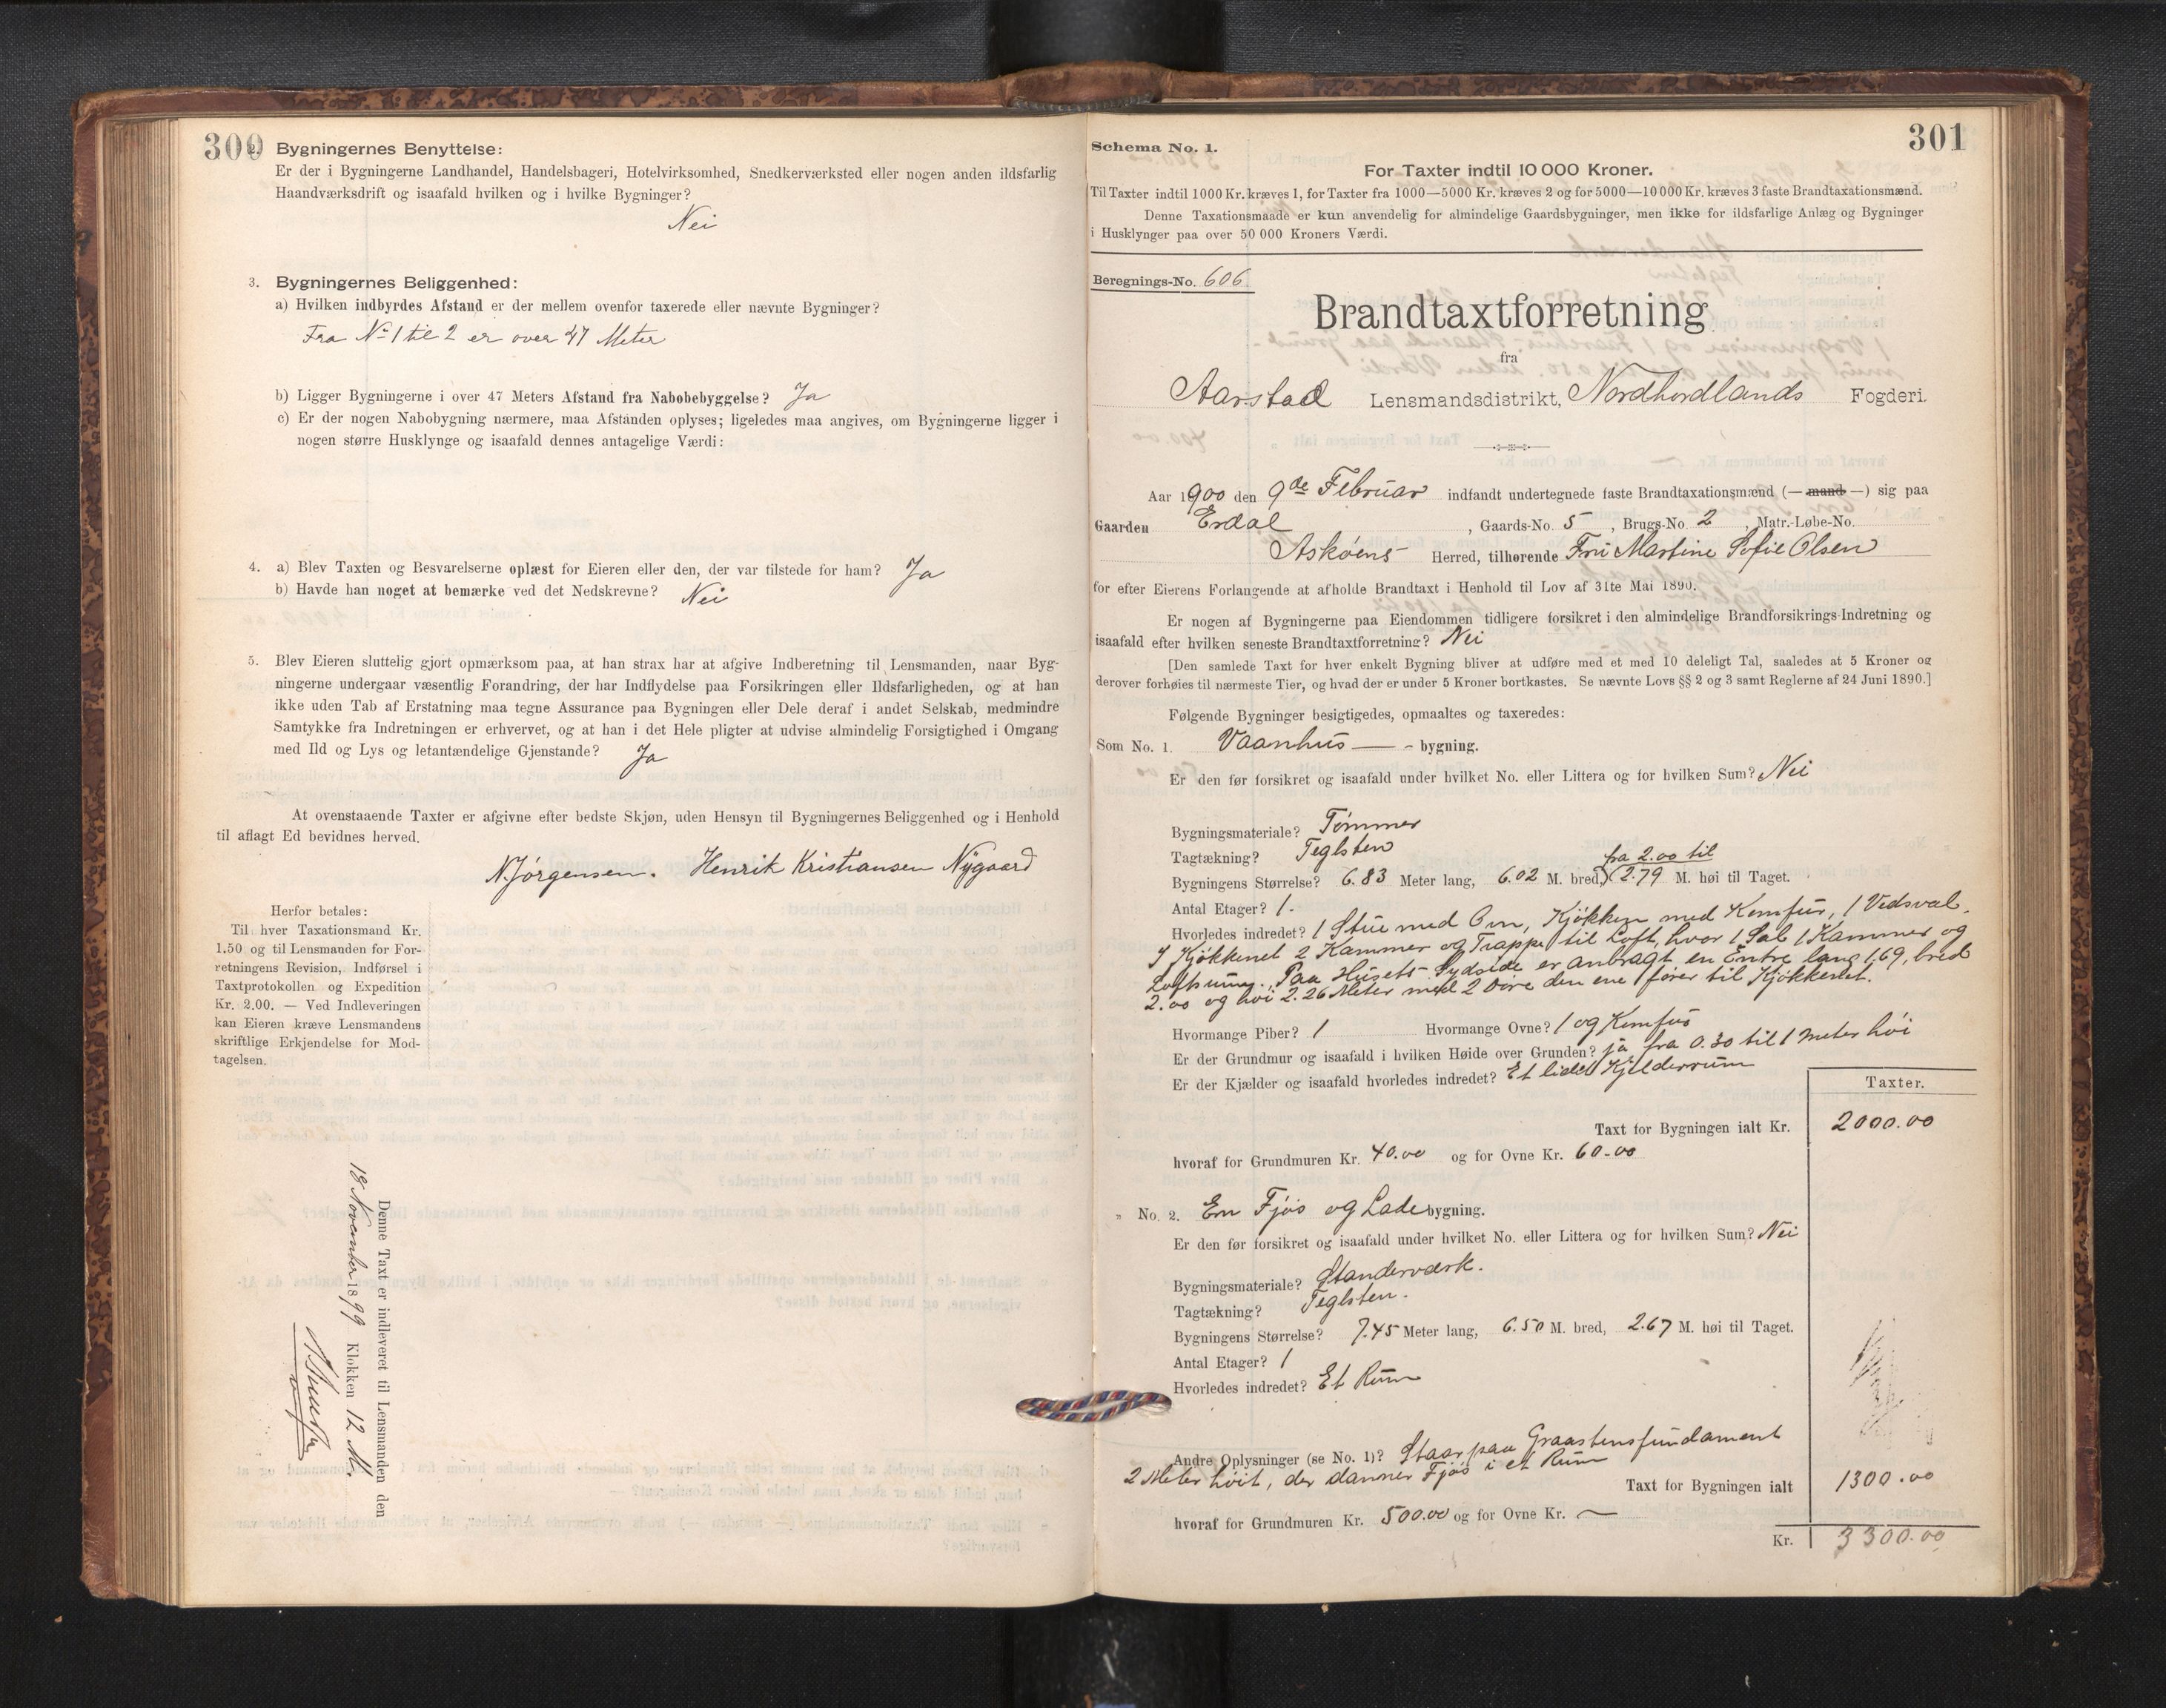 300
2. Bygningernes Benyttelse:
Er der i Bygningerne Landhandel, Handelsbageri, Hotelvirksomhed, Snedkerværksted eller nogen anden ildsfarlig
Haandværksdrift og isaafald hvilken og i hvilke Bygninger?
Nei
3. Bygningernes Beliggenhed:
a) Hvilken indbyrdes Afstand er der mellem ovenfor taxerede eller nævnte Bygninger?
Fra No 1 til 2 er over 47 Meter
b) Ligger Bygningerne i over 47 Meters Afstand fra Nabobebyggelse? Ja
c) Er der nogen Nabobygning nærmere, maa Afstanden oplyses; ligeledes maa angives, om Bygningerne ligger i
nogen større Husklynge og isaafald dennes antagelige Værdi:
4. a) Blev Taxten og Besvarelserne oplæst for Eieren eller den, der var tilstede for ham? Ja
b) Havde han noget at bemærke ved det Nedskrevne? Nei
5. Blev Eieren sluttelig gjort opmærksom paa, at han strax har at afgive Indberetning til Lensmanden, naar Byg-
ningerne undergaar væsentlig Forandring, der har Indflydelse paa Forsikringen eller Ildsfarligheden, og at han
ikke uden Tab af Erstatning maa tegne Assurance paa Bygningen eller Dele deraf i andet Selskab, medmindre
Samtykke fra Indretningen er erhvervet, og at han i det Hele pligter at udvise almindelig Forsigtighed i Omgang
med Ild og Lys og letantændelige Gjenstande? Ja
At ovenstaaende Taxter er afgivne efter bedste Skjøn, uden Hensyn til Bygningernes Beliggenhed og i Henhold
til aflagt Ed bevidnes herved.
N. Jørgensen. Henrik Kristiansen Nygaard
Herfor betales:
Til hver Taxationsmand Kr.
1.50 og til Lensmanden for For-
retningens Revision, Indførsel i
Taxtprotokollen og Expedition
Kr. 2.00. — Ved Indleveringen
kan Eieren kræve Lensmandens
skriftlige Erkjendelse for Mod-
tagelsen.
Denne Taxt er indleveret til Lensmanden den
18 November 1899 Klokken 12 M.
301
Schema No. 1.
For Taxter indtil 10 000 Kroner.
Til Taxter indtil 1000 Kr. kræves 1, for Taxter fra 1000—5000 Kr. kræves 2 og for 5000—10 000 Kr. kræves 3 faste Brandtaxationsmænd.
Denne Taxationsmaade er kun anvendelig for almindelige Gaardsbygninger, men ikke for ildsfarlige Anlæg og Bygninger
i Husklynger paa over 50 000 Kroners Værdi.
Beregnings-No. 606
Brandtaxtforretning
fra
Aarstad Lensmandsdistrikt, Nordhordlands Fogderi.
Aar 1900 den 9de Februar indfandt undertegnede faste Brandtaxationsmænd (— mand —) sig paa
Gaarden Erdal, Gaards-No. 5, Brugs-No. 2, Matr.-Løbe-No.
Askøens Herred, tilhørende Fru Martine Sofie Olsen
for efter Eierens Forlangende at afholde Brandtaxt i Henhold til Lov af 31te Mai 1890.
Er nogen af Bygningerne paa Eiendommen tidligere forsikret i den almindelige Brandforsikrings-Indretning og
isaafald efter hvilken seneste Brandtaxtforretning? Nei
[Den samlede Taxt for hver enkelt Bygning bliver at udføre med et med 10 deleligt Tal, saaledes at 5 Kroner og
derover forhøies til nærmeste Tier, og hvad der er under 5 Kroner bortkastes. Se nævnte Lovs §§ 2 og 3 samt Reglerne af 24 Juni 1890.]
Følgende Bygninger besigtigedes, opmaaltes og taxeredes:
Som No. 1. Vaanhus — - bygning.
Er den før forsikret og isaafald under hvilket No. eller Littera og for hvilken Sum? Nei
Bygningsmateriale? Tømmer
Tagtækning? Teglsten
fra 2.00 til
Bygningens Størrelse? 6.83 Meter lang, 6.02 M. bred, 2.79 M. høi til Taget.
Antal Etager? 1.
Hvorledes indredet? 1 Stue med Ovn, Kjøkken med Komfur, 1 Vedsval.
I Kjøkkenet 2 Kammer og Trappe til Loft, hvor 1 Sal 1 Kammer og
Loftsrum. Paa Husets Sydside er anbragt en Entre lang 1,69, bred
2.00 og høi 2.26 Meter med 2 Døre den ene fører til Kjøkkenet.
Hvormange Piber? 1 Hvormange Ovne? 1 og Komfur
Er der Grundmur og isaafald i hvilken Høide over Grunden? ja fra 0.30 til 1 Meter høi
Er der Kjælder og isaafald hvorledes indredet? Et lidet Kjelderrum
Taxter.
Taxt for Bygningen ialt Kr. 2000.00
hvoraf for Grundmuren Kr. 40.00 og for Ovne Kr. 60.00
„ No. 2. En Fjøs og Ladebygning.
Er den før forsikret og isaafald under hvilket No. eller Littera og for hvilken Sum? Nei
Bygningsmateriale? Standerværk.
Tagtækning? Teglsten.
Bygningens Størrelse? 7.45 Meter lang, 6.50 M. bred, 2.67 M. høi til Taget.
Antal Etager? 1
Hvorledes indredet? Et Rum
Andre Oplysninger (se No. 1)? Staar paa Graastensfundament
2 Meter høit, der danner Fjøs i et Rum
Taxt for Bygningen ialt 1300.00
hvoraf for Grundmuren Kr. 500.00 og for Ovne Kr. —
Kr. 3300.00